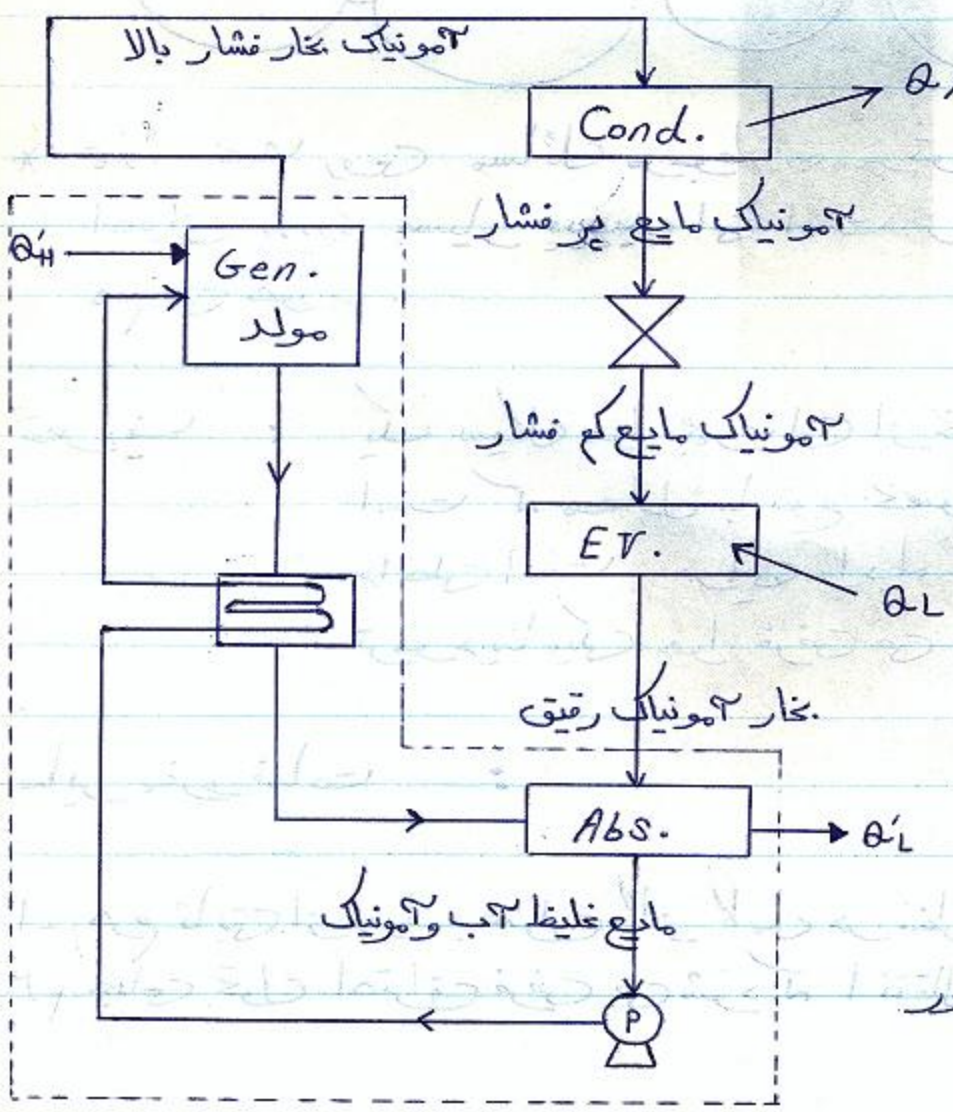 آمونیاک بخار فشار بالا
Cond.
آمونیاک مایع پر فشار
Q'H
Gen.
مولد
آمونیاک مایع کم فشار
EV.
QL
بخار آمونیاک رقیق
Abs.
Q'L
مایع غلیظ آب و آمونیاک
P